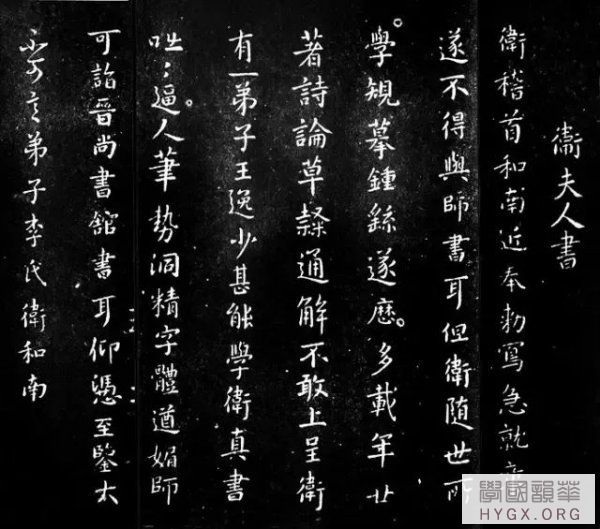 衛夫人書
衛稽首和南近奉勅寫急就
遂不得與師書耳但衛隨世所
學規摹鍾繇遂歷。多載年廿
著詩論草隸通解不敢上呈衛
有一弟子王逸少甚能學衛真書
咄〻逼。人筆勢洞精字體遒媚師
可詣晉尚書館書耳仰憑至鑒太
不可言弟子李氏衛和南
學國韻華
HYGX.ORG